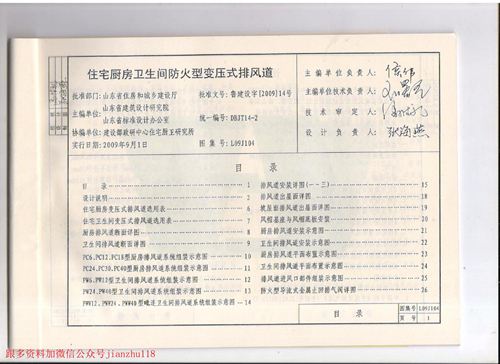 住宅厨房卫生间防火型变压式排风道
批准部门：山东省住房和城乡建设厅
批准文号：鲁建设字[2009]14号
主编单位：山东省建筑设计研究院
山东省标准设计办公室
统一编号：DBJT14-2
协编单位：建设部政研中心住宅厨卫研究所
实行日期：2009年9月1日
图集号：L09J104
主编单位负责人：
主编单位技术负责人：
技术审定人：
设计负责人：张海燕
目录
目录 1
设计说明 2
住宅厨房变压式排风道选用表 6
住宅卫生间变压式排风道选用表 7
厨房排风道断面详图 8
卫生间排风道断面详图 9
PC6、PC12、PC18型厨房排风道系统组装示意图 10
PC24、PC30、PC40型厨房排风道系统组装示意图 11
PW6、PW12型卫生间排风道系统组装示意图 12
PW24、PW40型卫生间排风道系统组装示意图 13
PWW12、PWW24、PWW40型暗进式卫生间排风道系统组装示意图 14
排风道安装详图(一-三) 15
排风道出屋面详图 18
坡屋面排风道出屋面详图 19
风帽基座与风帽底板安装 20
厨房排风道安装示意图 21
卫生间排风道安装示意图 22
厨房排风道平面布置示意图 23
卫生间排风道平面布置示意图 24
排风道进风口部件组装示意图 25
防火型导流式金属止回排气阀详图 26
目录
图集号 L09J104
页号 1
跟多资料加微信公众号jianzhu118